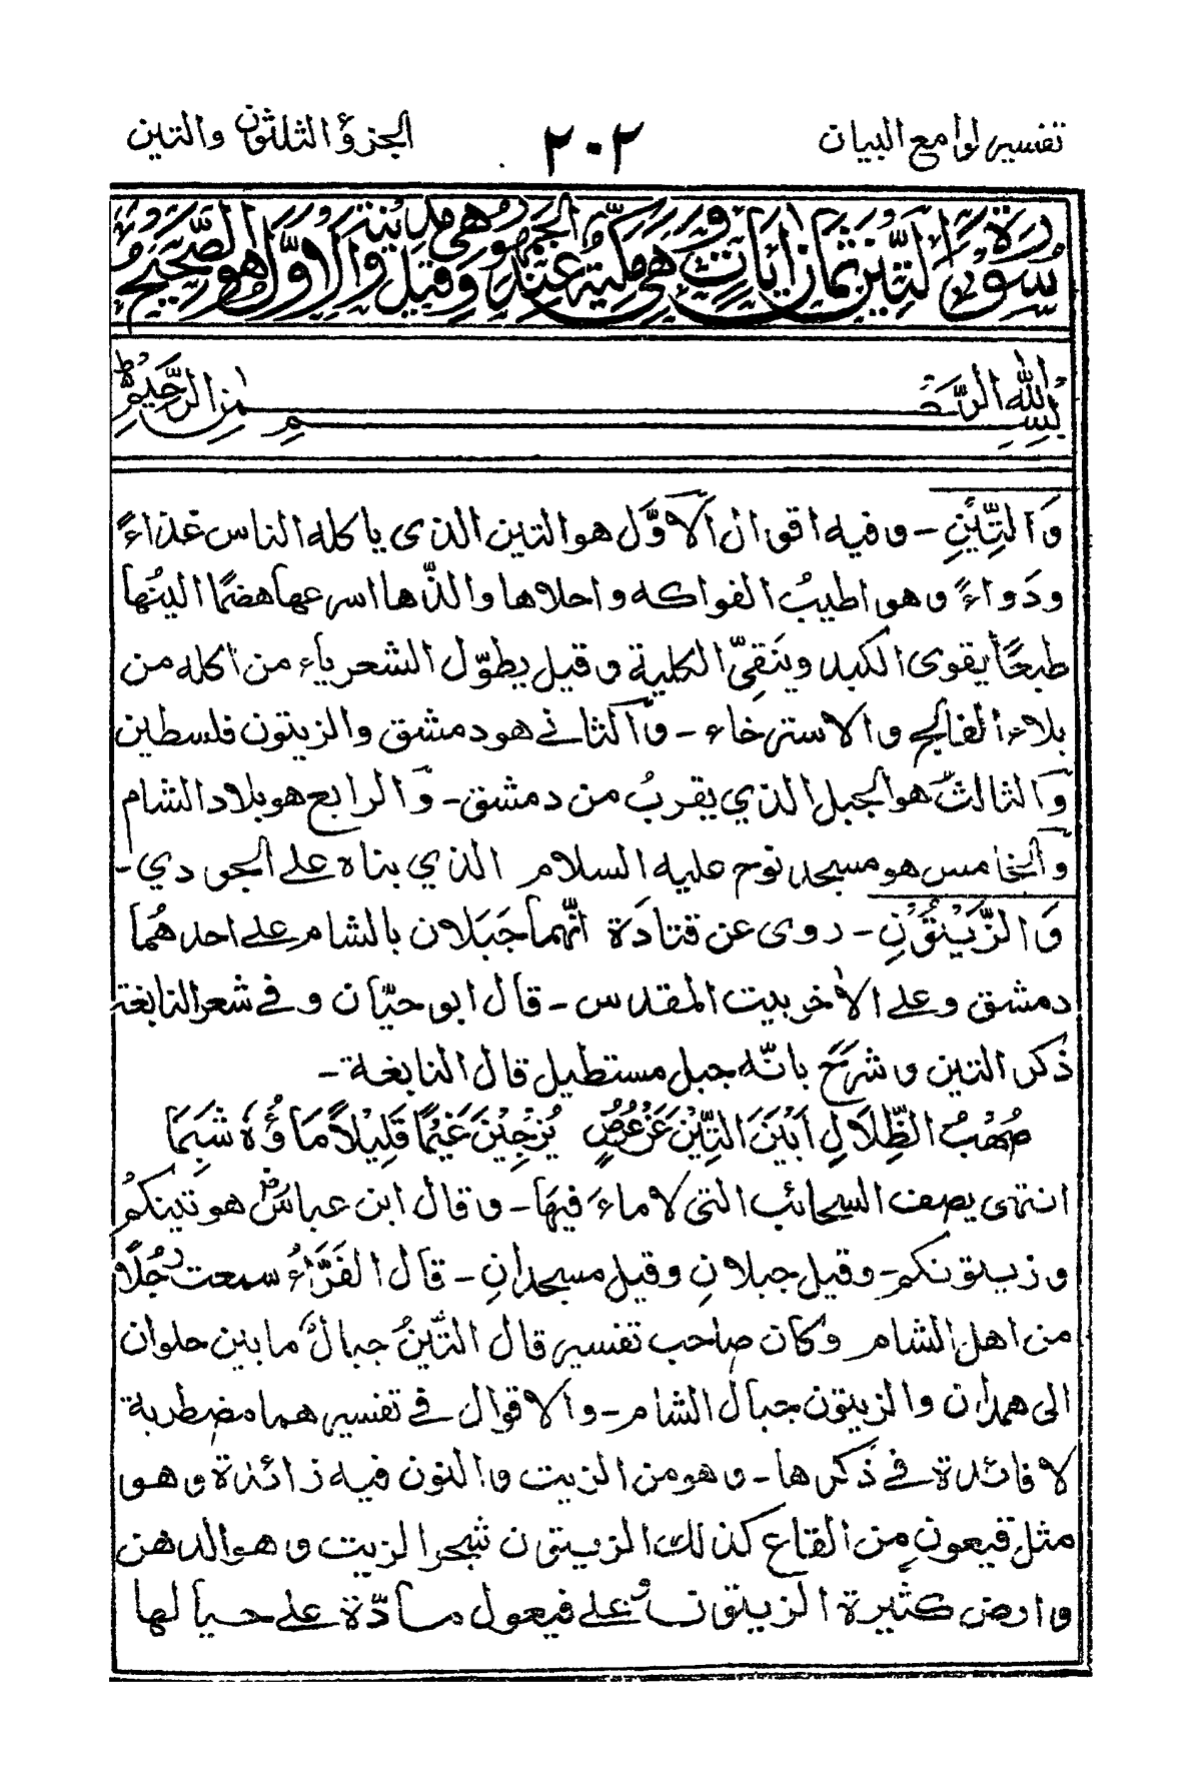 تفسير لوامع البيان ٢٠٢ الجزؤ الثلثون والتين
سورة التين ثمان ايات وهي مكية عند الجمهور وقيل هي مدنية والاول هو الصحيح
بسم الله الرحمن الرحيم
وَالتِّيْنِ - وفيه اقوال اَلْاَوَّل هو التين الذى ياكله الناس غذاءً
ودَواءً وهو اطيبُ الفواكه واحلاها والذّها اسرعها هضمًا الينُها
طبعًا يقوى الكبد وينَقِىّ الكلية وقيل يطوّل الشعر ياء من اكله من
بلاء الفالج والاسترخاء - وَالثانے هو دمشق والزيتون فلسطين
وَالثالثُ هو الجبل الذي يقربُ من دمشق - وَالرابع هو بلاد الشام
وَالخامس هو مسجد نوح عليه السلام الذي بناه علے الجودي -
وَالزَّيْتُوْنِ - روى عن قتادَة انّهما جَبَلان بالشام علے احدهُما
دمشق وعلے الاٰخر بيت المقدس - قال ابو حيّان وفے شعر النابغة
ذكر التين وشَرَحَ بانّه جبل مستطيل قال النابغة -
صُهْبُ الظِّلَالِ اَبَيْنَ التِّيْنَ عَنْ عُرُضٍ يُزْجِيْنَ غَيْمًا قَلِيْلًا مَاؤُهٗ شَبِمَا
انتهى يصف السحائب التى لاماءَ فيهَا - وقال ابن عباسؓ هو تينكمُ
وزيتونكم - وقيل جبلانِ وقيل مسجدانِ - قال الفَرَّاءُ سمعت رجُلًا
من اهل الشام وكان صاحب تفسير قال التّينُ جبالٌ ما بين حلوان
الى همدان والزيتون جبال الشام - والاقوال فے تفسيرهما مضطربة
لا فائدة فے ذكرها - وهو من الزيت والنون فيه زائدة وهو
مثل قيعون من القاع كذلك الزيتون شجر الزيت وهو الدهن
وارض كثيرة الزيتون علے فيعول مادّة علے حيالها